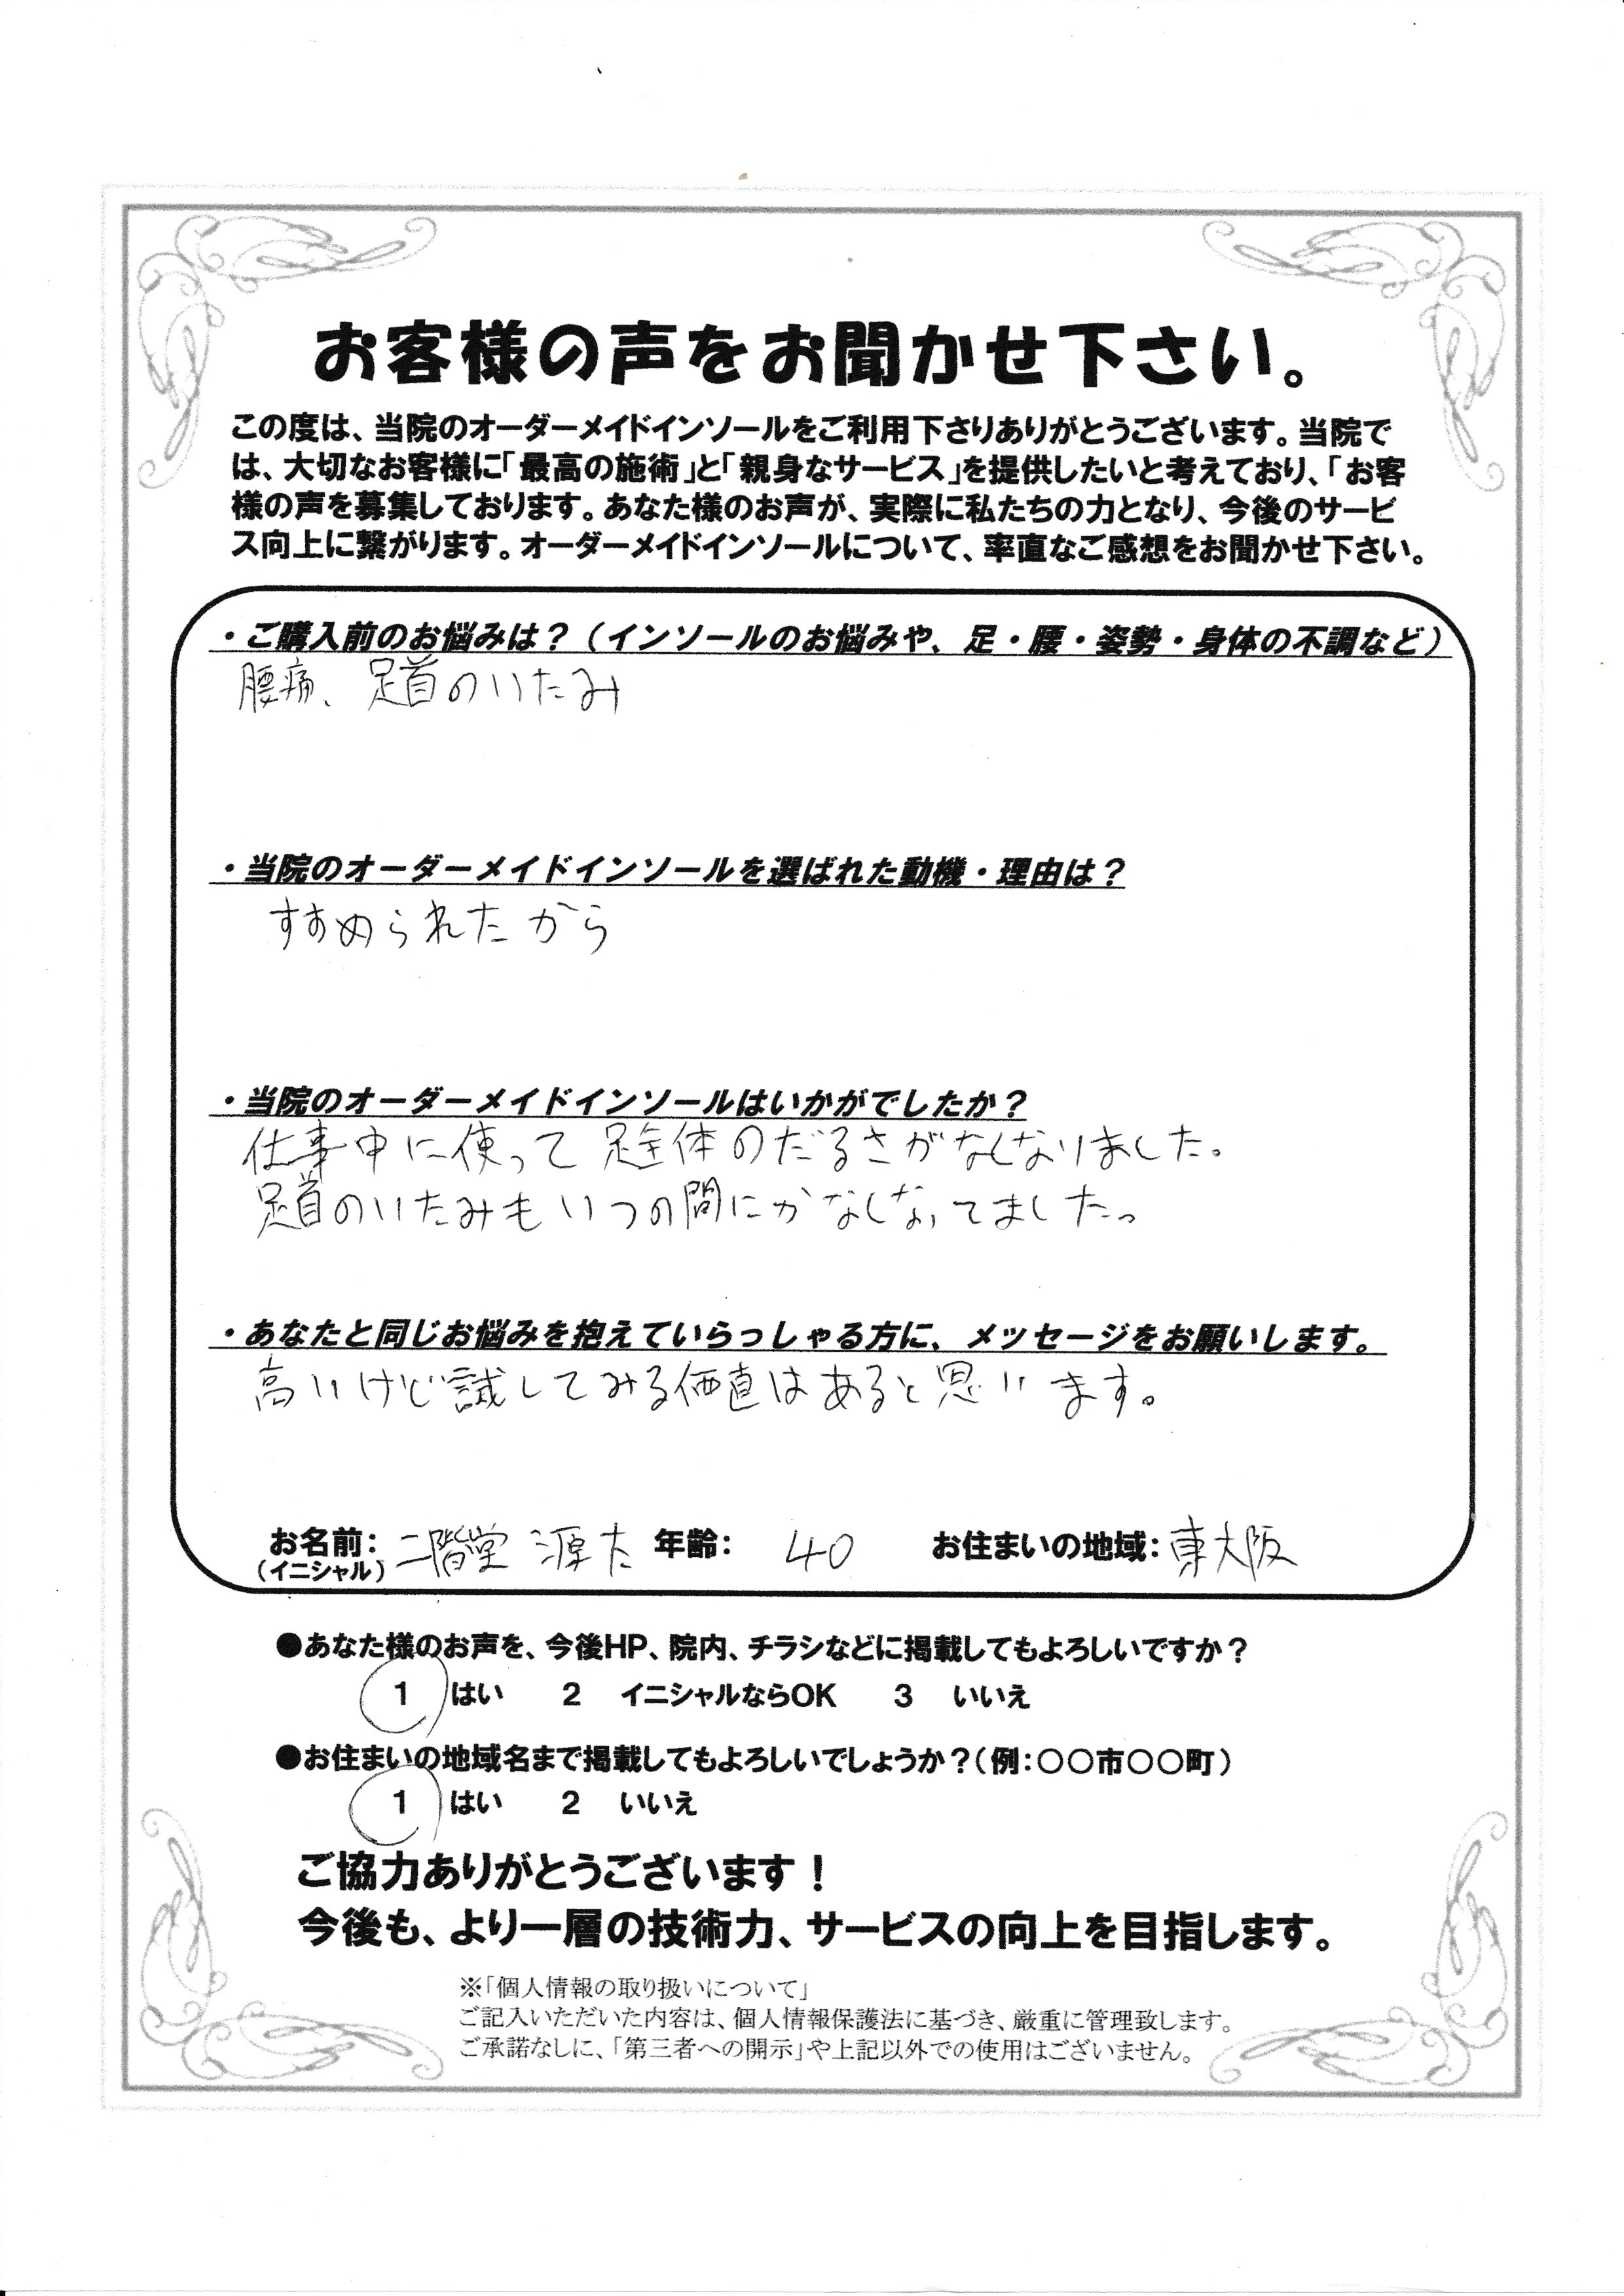 お客様の声をお聞かせ下さい。
この度は、当院のオーダーメイドインソールをご利用下さりありがとうございます。当院で
は、大切なお客様に「最高の施術」と「親身なサービス」を提供したいと考えており、「お客
様の声を募集しております。あなた様のお声が、実際に私たちの力となり、今後のサービ
ス向上に繋がります。オーダーメイドインソールについて、率直なご感想をお聞かせ下さい。
・ご購入前のお悩みは？（インソールのお悩みや、足・腰・姿勢・身体の不調など）
腰痛、足首のいたみ
・当院のオーダーメイドインソールを選ばれた動機・理由は？
すすめられたから
・当院のオーダーメイドインソールはいかがでしたか？
仕事中に使って足全体のだるさがなくなりました。
足首のいたみもいつの間にかなくなってました。
・あなたと同じお悩みを抱えていらっしゃる方に、メッセージをお願いします。
高いけど試してみる価値はあると思います。
お名前： 二階堂 源 年齢： 40 お住まいの地域： 東大阪
（イニシャル）
●あなた様のお声を、今後HP、院内、チラシなどに掲載してもよろしいですか？
1 はい 2 イニシャルならOK 3 いいえ
●お住まいの地域名まで掲載してもよろしいでしょうか？（例：〇〇市〇〇町）
1 はい 2 いいえ
ご協力ありがとうございます！
今後も、より一層の技術力、サービスの向上を目指します。
※「個人情報の取り扱いについて」
ご記入いただいた内容は、個人情報保護法に基づき、厳重に管理致します。
ご承諾なしに、「第三者への開示」や上記以外での使用はございません。